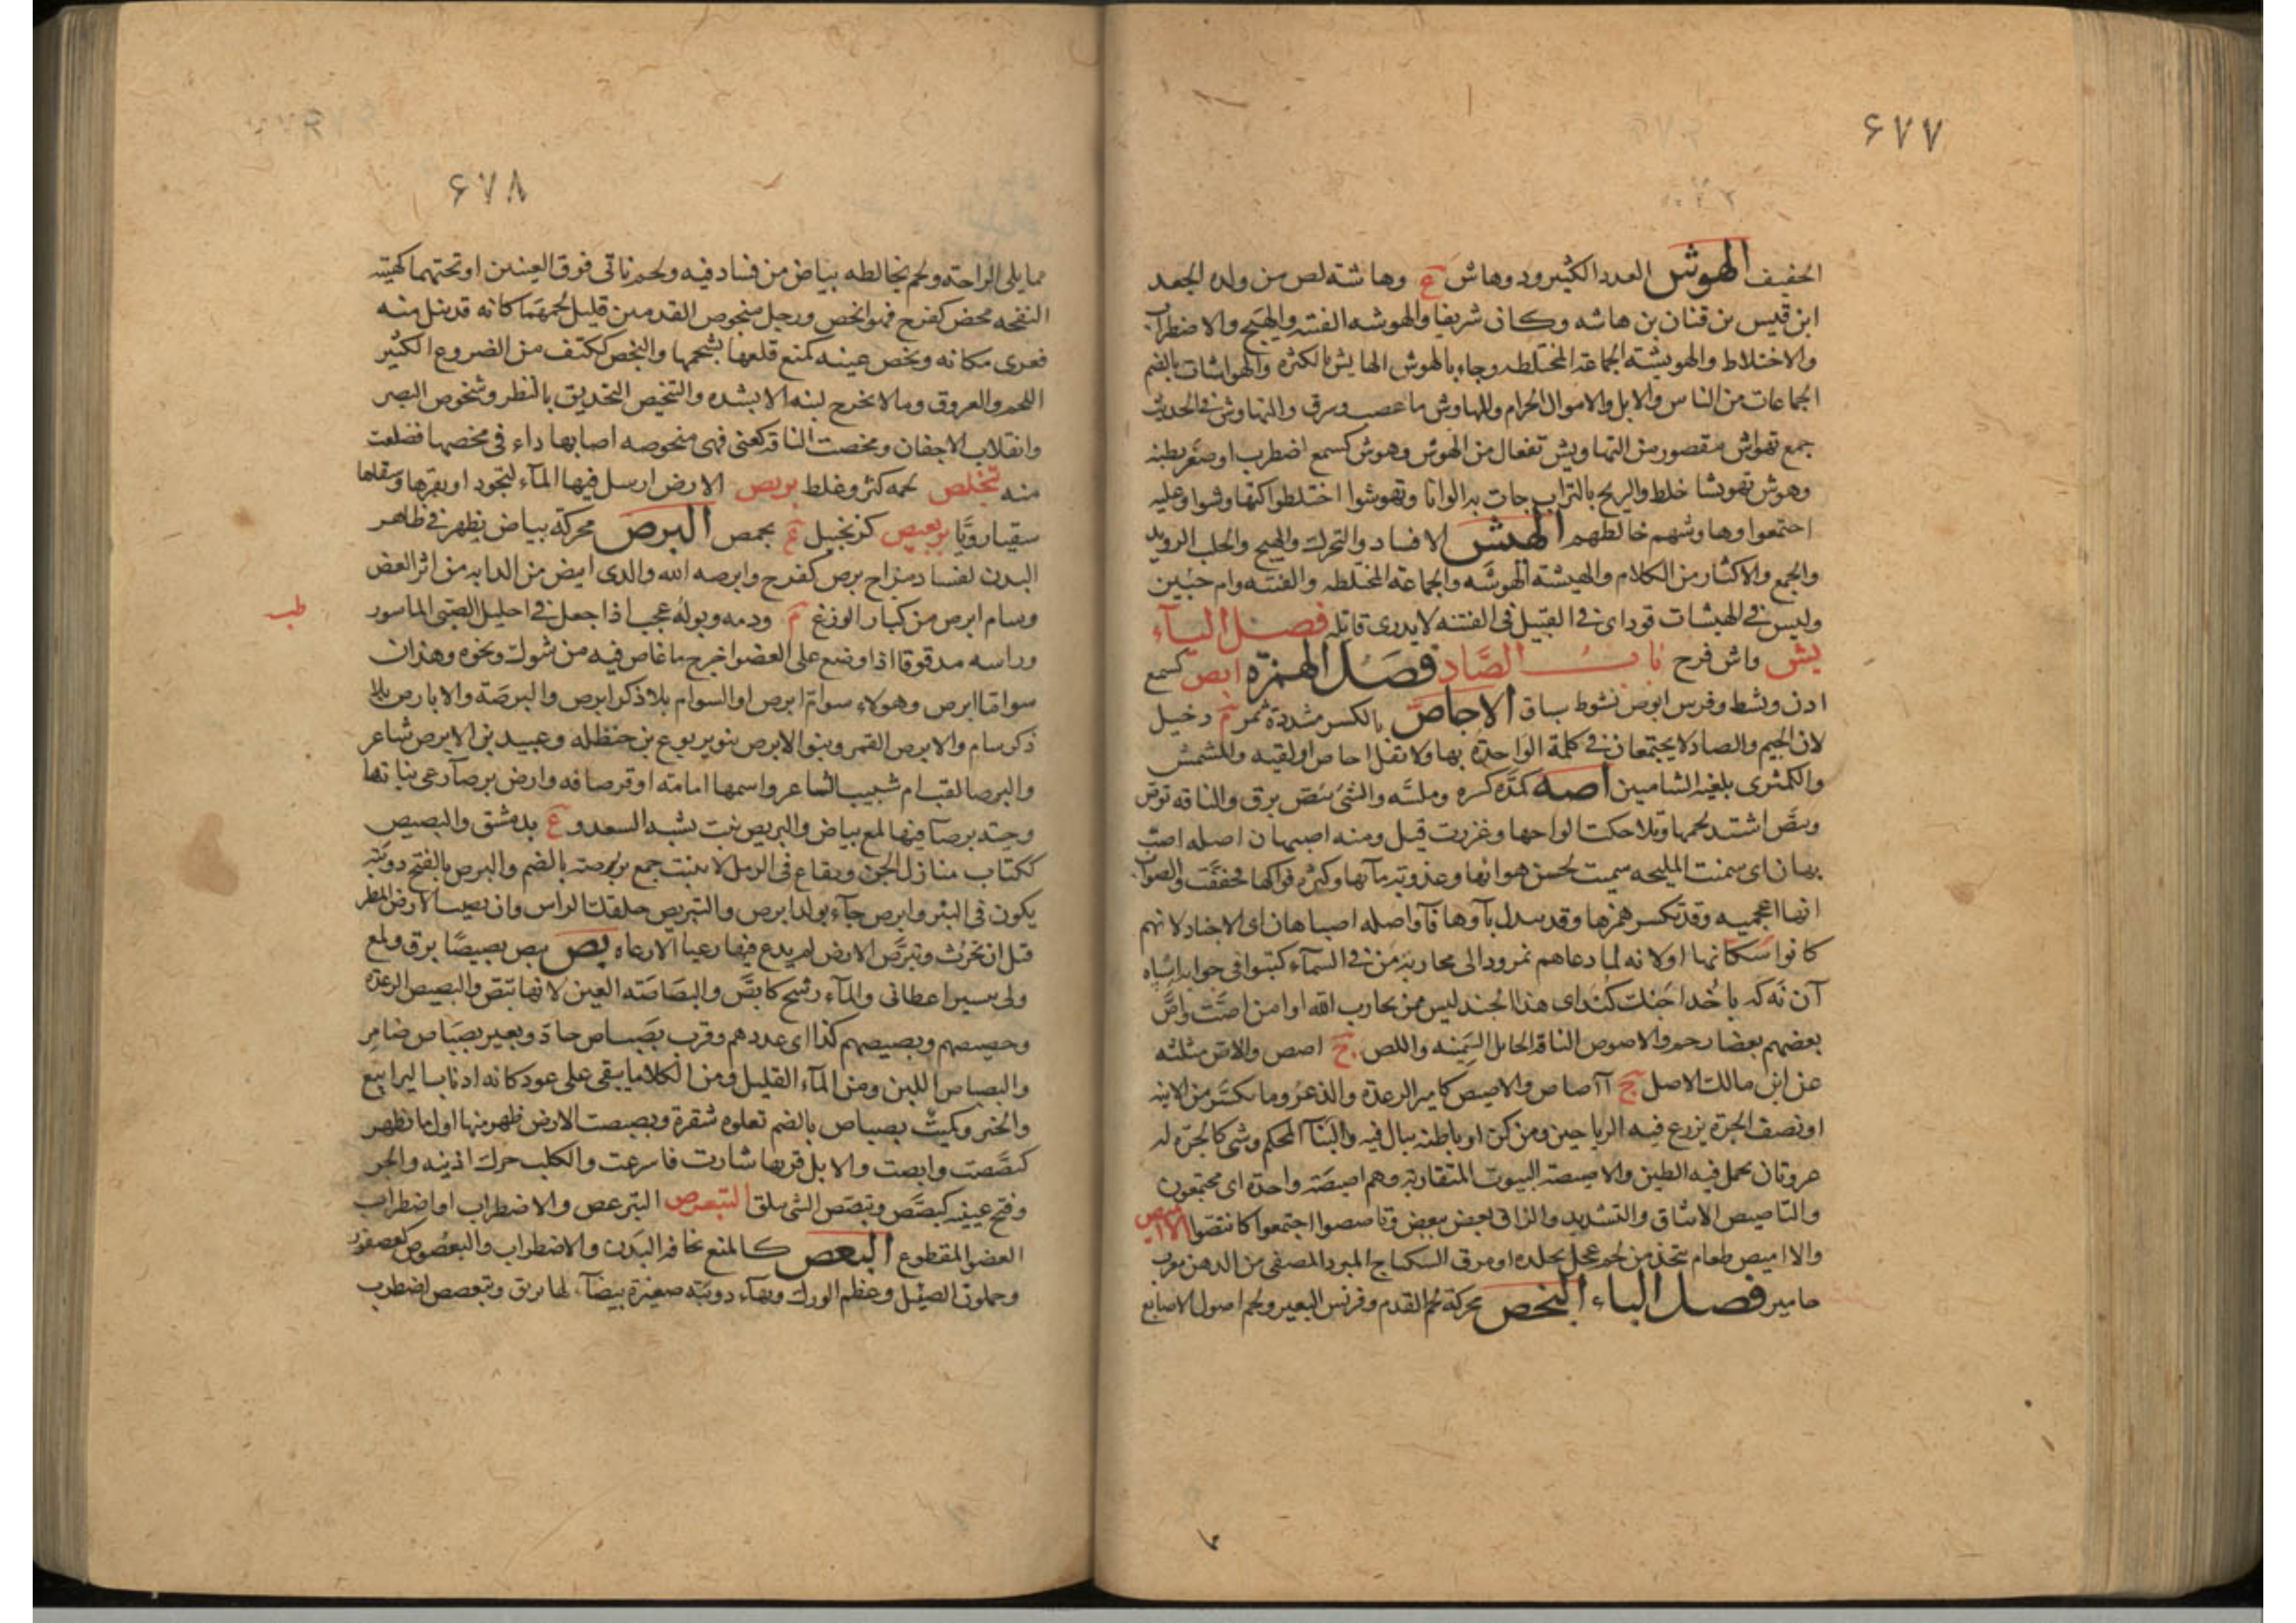 ۶۷۷
الخفيف الهوش العدد الكثير ود وهاش ع وهاشة لص من ولده الجعد
ابن قيس بن قنان بن هاشه وكان شريفا والهوشه الفتنه والهيج والاضطراب
والاختلاط والهويشته الجماعة المختلطه وجاء بالهوش الهايش بالكثره والهواشات بالضم
الجماعات من الناس والابل والاموال الحرام والمهاوش ما غصب وسرق والتهاوش في الحديث
جمع تهواش مقصور من التهاويش تفعال من الهوش وهوش كسمع اضطرب او صغر بطنه
وهوش تهويشا خلط والريح بالتراب جات به الوانا وتهوشوا اختلطوا كتهاوشوا وعليه
اجتمعوا وهاوشهم خالطهم الهيش الافساد والتحرك والهيج والحلب الرويد
والجمع والاكثار من الكلام والهيشة الهوشه والجماعة المختلطه والفتنه وام حبين
وليس في الهيشات قود اى في القتيل فى الفتنه لا يدرى قاتله فصل الياء
يش واش فرح باب الصاد فصل الهمزة ابص كسمع
ارن ونشط وفرس ابوص نشوط سباق الاجاص بالكسر مشددة ثمر م دخيل
لان الجيم والصاد لا يجتمعان في كلمة الواحدة بهاء ولا تقل اجاص او لقيه والمشمش
والكمثرى بلغة الشاميين اصه كمده كسره وملسه والشئ يئص برق والناقه توص
وتئص اشتد لحمها وتلاحكت الواحها وغزرت قيل ومنه اصبهان اصله اصت
بهان اى سمنت المليحه سميت لحسن هوائها وعذوبة مآئها وكثرة فواكها فخففت والصواب
انها اعجميه وقد تكسر همزها وقد يبدل بآوها فآ واصله اصباهان اى الاجناد لانهم
كانوا سكانها او لانه لما دعاهم نمرود الى محاربة من في السمآء كتبوا فى جوابه اسباه
آن نه كه باخدا جنك كند اى هذا الجند ليس ممن يحارب الله او من اصت واص
بعضهم بعضا زحم والاصوص الناقة الحايل السمينه واللص ج اصص والاص مثلثه
عن ابن مالك الاصل ج آصاص والاصيص كامير الرعدة والذعر وما تكسر من الانيه
او نصف الجرة يزرع فيه الرياحين ومن كن او باطئه يبال فيه والبنآ المحكم وشئ كالجرة له
عروتان يحمل فيه الطين والاصيصة البيوت المتقاربة وهم اصيصة واحدة اى مجتمعون
والتاصيص الايثاق والتشديد والزاق بعض ببعض وتاصصوا اجتمعوا كائتصوا الاميص
والاميص طعام يتخذ من لحم عجل بجلده او مرق السكباج المبرد المصفى من الدهن معرب
خامير فصل الباء البخص محركة لحم القدم وفرسن البعير ولحم اصول الاصابع
۶۷۸
مما يلى الراحة ولحم يخالطه بياض من فساد فيه ولحم ناتى فوق العينين او تحتهما كهيئة
النفخه بخص كفرح فهو ابخص ورجل مبخوص القدمين قليل لحمهما كانه قد نيل منه
فعرى مكانه وبخص عينه كمنع قلعها بشحمها والبخص ككتف من الضروع الكثير
اللحم والعروق وما لا يخرج لبنه الا بشده والتبخيص التحديق بالنظر وشخوص البصر
وانقلاب الاجفان وبخصت الناقة كعنى فهى مبخوصه اصابها داء فى بخصها فضلعت
منه تبخلص لحمه كثر وغلظ بربص الارض ارسل فيها المآء لتجود او بقرها وسقاها
سقيا رويا بربعيص كزنجبيل ع بحمص البرص محركة بياض يظهر في ظاهر
البدن لفساد مزاج برص كفرح وابرصه الله والذى ابيض من الدابه من اثر العض
وسام ابرص من كبار الوزغ م ودمه وبوله عجيب اذا جعل في احليل الصبى الماسور
طب
وراسه مدقوقا اذا وضع على العضو اخرج ما غاص فيه من شوك ونحوه وهذان
سواما ابرص وهولاء سوام ابرص او السوام بلا ذكر ابرص والبرصة والابارص بلا
ذكر سام والابرص القمر وبنو الابرص بنو يربوع بن حنظله وعبيد بن الابرص شاعر
والبرصا لقب ام شبيب الشاعر واسمها امامه او قرصافه وارض برصآ رعى نباتها
وحية برصآ فيها لمع بياض والبريص نبت يشبه السعد و ع بدمشق والبصيص
ككتاب منازل الجن وبقاع فى الرمل لا تنبت جمع برصة بالضم والبرص بالفتح دويبة
يكون فى البئر وابرص جآء بولد ابرص والتبريص حلقك الراس وان يصيب الارض المطر
قبل ان تحرث وتبرص الارض لم يدع فيها رعيا الا رعاه بص يبص بصيصا برق ولمع
ولى بيسير اعطانى والمآء رشح كابص والبصاصه العين لانها تبص والبصيص الرعده
وحصيصهم وبصيصهم كذا اى عددهم وقرب بصباص جاد وبعير بصباص ضامر
والبصباص اللبن ومن المآء القليل ومن الكلا ما يبقى على عود كانه اذناب اليرابيع
والخبز وكيت بصباص بالضم تعلوه شقرة وبصبصت الارض ظهر منها اول ما نظهر
كبصصت وابصت والابل قربها سارت فاسرعت والكلب حرك اذنيه والجرو
وفتح عينيه كبصص وتبصص الشى سلق التبعرص التبرعص والاضطراب او اضطراب
العضو المقطوع البعص كالمنع نحافة البدن والاضطراب والبعصوص كعصفور
وحملون الضئيل وعظم الورك وبهآء دويبة صغيرة بيضآء لها بريق وتبعصص اضطرب